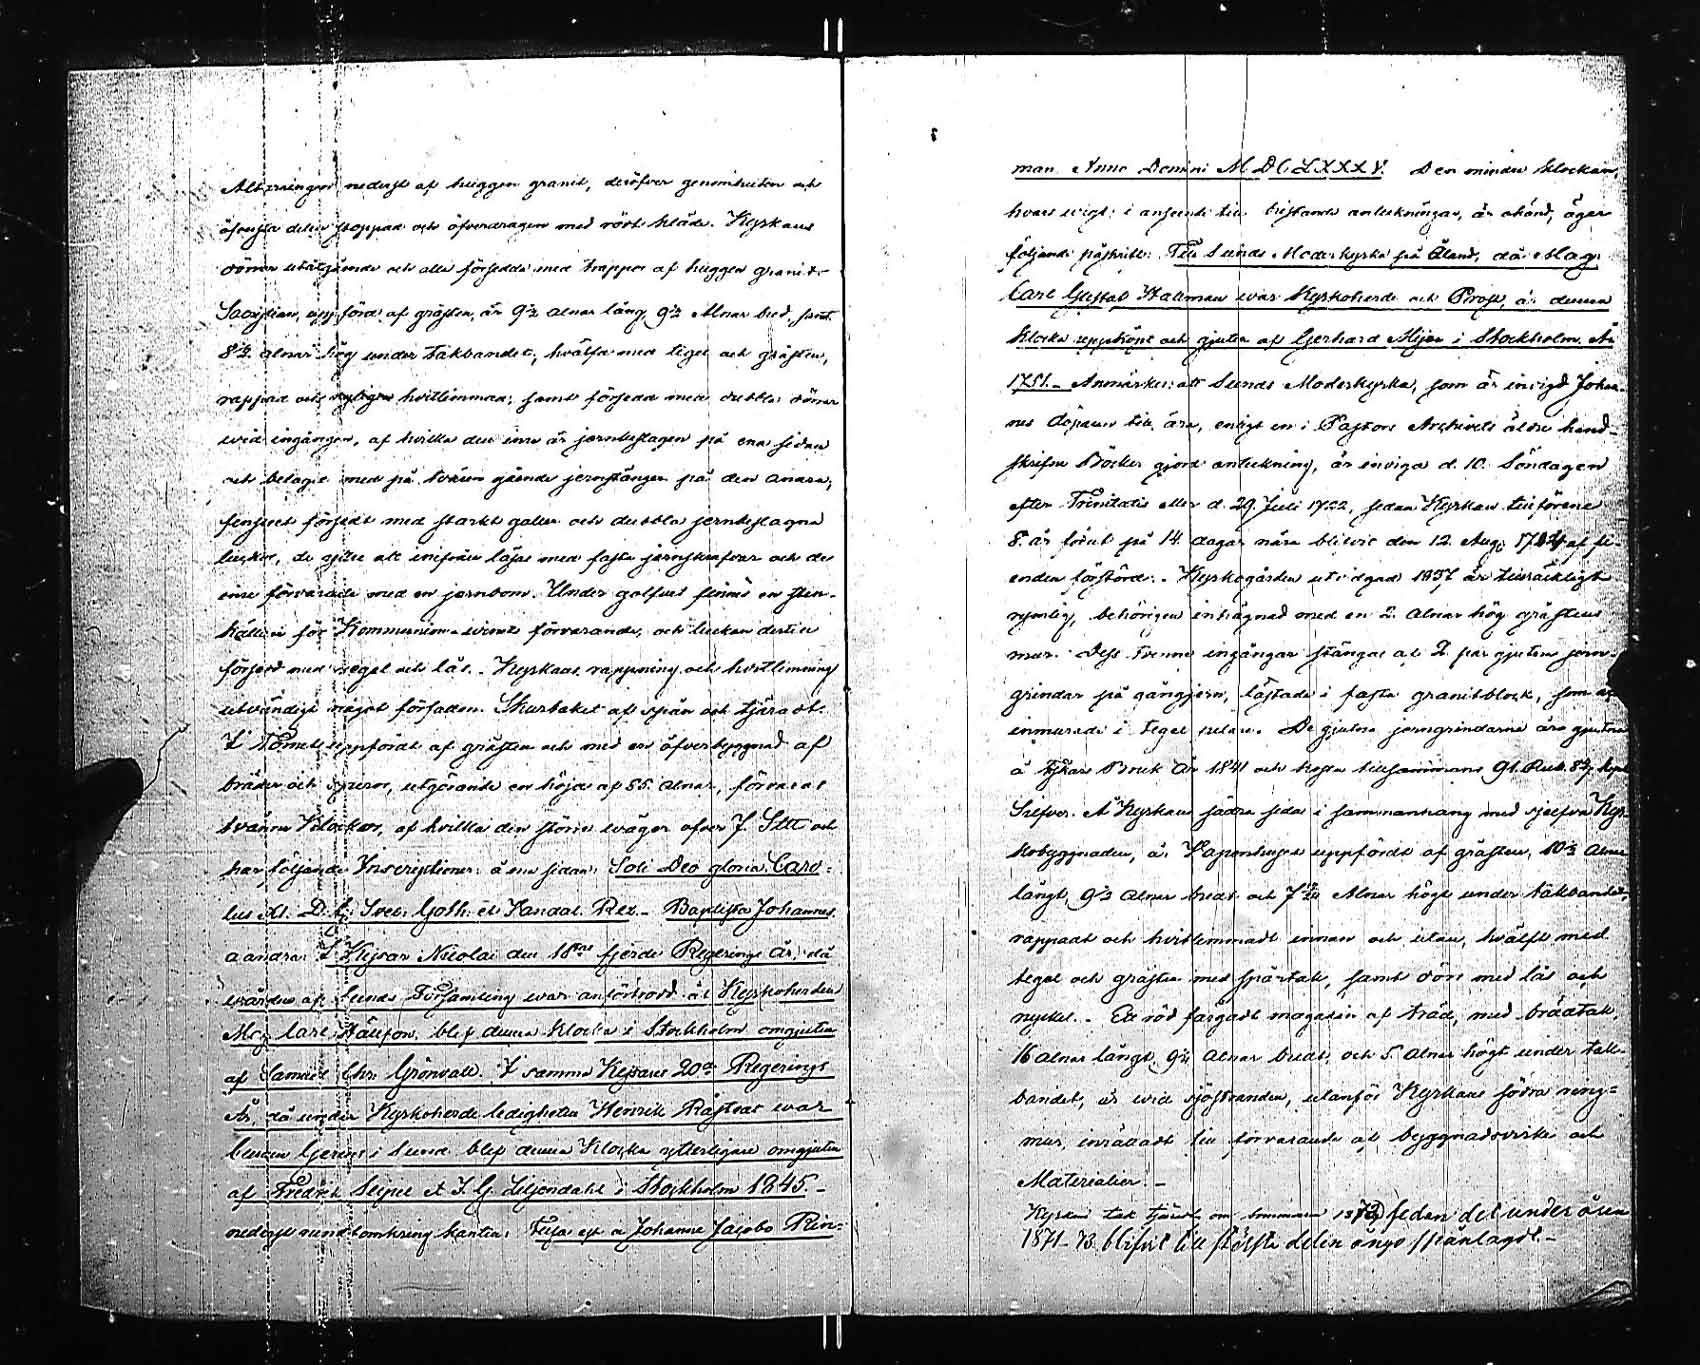 Altarringen nederst af huggen granit, deröfver genombruten och
öfversta delen stoppad och öfverdragen med rödt kläde. Kyrkans
dörrar utåtgående och alla försedda med trappor af huggen granit.
Sacristian, uppförd af gråsten, är 9½ alnar lång, 9½ Alnar bred, samt
8½ alnar hög under takbandet, hvälfd med tegel och gråsten,
rappad och hvitlimmad, samt försedd med dubbla dörrar
wid ingången, af hvilka den inre är jernbeslagen på ena sidan
och belagd med på tvären gående jernstänger på den andra;
fenstret försedt med starkt galler och dubbla jernbeslagna
luckor, de yttre att inifrån låsas med fasta jernskrufvar och de
inre förvarade med en jernbom. Under golfvet finnes en sten-
källare för Kommunion-winets förvarande, och luckan dertill
försedd med regel och lås. Kyrkans rappning och hvitlimning
utvändigt något förfaden. Skurtaket af spån och tjäradt.
I Tornet uppfördt af gråsten och med en öfverbyggnad af
bräder och spiror, utgörande en höjd af 85 alnar, förvaras
tvänne Klockor, af hvilka den större wäger öfver 7 Sttt och
har följande Inscriptioner: å ena sidan: Soli Deo gloria. Caro-
lus XI. D. G. Svec. Goth. et Vandal. Rex. - Baptista Johannes.
å andra: I Kejsar Nicolai den 1stes fjerde Regerings År, då
wården af Sunds Församling war anförtrodd åt Kyrkoherden
Mag. Carl blef denna Klocka i Stockholm omgjuten
af Samuel Chr. Grönvall. I samma Kejsares 20de Regerings
År, då under Kyrkoherde ledigheten Henrik Råstedt war
Curam Gerens i Sund blef denna Klocka ytterligare omgjuten
af Fredrik Seipel et I. G. Liljendahl i Stockholm 1845. -
nederst rundt omkring kanten: Fusa est a Johanne Jacobo Rin-
man Anno Domini MDCLXXXV. Den mindre klockan,
hvars wigt, i anseende till bristande anteckningar, är okänd, äger
följande påskrift: Till Sunds Moderkyrka på Åland, då Mag.
Carl Gustaf Wallman war Kyrkoherde och Prost, är denna
klocka uppköpt och gjuten af Gerhard Mijer i Stockholm År
1751. - Anmärkes: att Sunds Moderkyrka, som är invigd Johan-
nes döparen till ära, enligt en i Pastors Archivets äldre hand-
skrifna Böcker gjord anteckning, är invigd d. 10 Söndagen
efter Trinitatis eller d. 29 Juli 1722, sedan Kyrkan tillförene
8 år förut på 14 dagar nära blifvit den 12 Aug. 1714 af fi-
enden förstörd. - Kyrkogården utvidgad 1837 är tillräckligt
rymlig, behörigen inhägnad med en 2 alnar hög gråstens
mur. Dess tvenne ingångar stängas af 2 par gjutna jern-
grindar på gångjern, fästade i fasta granitblock, som äro
inmurade i tegel pelare. De gjutna jerngrindarna äro gjutna
å Fiskars Bruk År 1841 och kosta tillsammans 91 Rub. 82 Kop
Silfver. Å Kyrkans södra sida i sammanhang med sjelfva Kyr-
kobyggnaden, är Vapenhuset uppfördt af gråsten, 10½ Alnar
långt, 9½ alnar bredt och 7 Alnar högt under takbandet,
rappadt och hvitlimmadt innan och utan, hvälft med
tegel och gråsten med spåntak, samt dörr med lås och
nyckel. - Ett röd färgadt magasin af träd, med brädtak,
16 alnar långt, 9½ alnar bredt, och 5 alnar högt under tak-
bandet, är wid sjöstranden, utanför Kyrkans södra ring-
mur, inrättadt till förvarande af byggnadsvirke och
Materialier. -
Kyrkans tak tjärades om sommaren 1873, sedan det under åren
1871-73 blifvit till största delen ånyo spånlagdt -